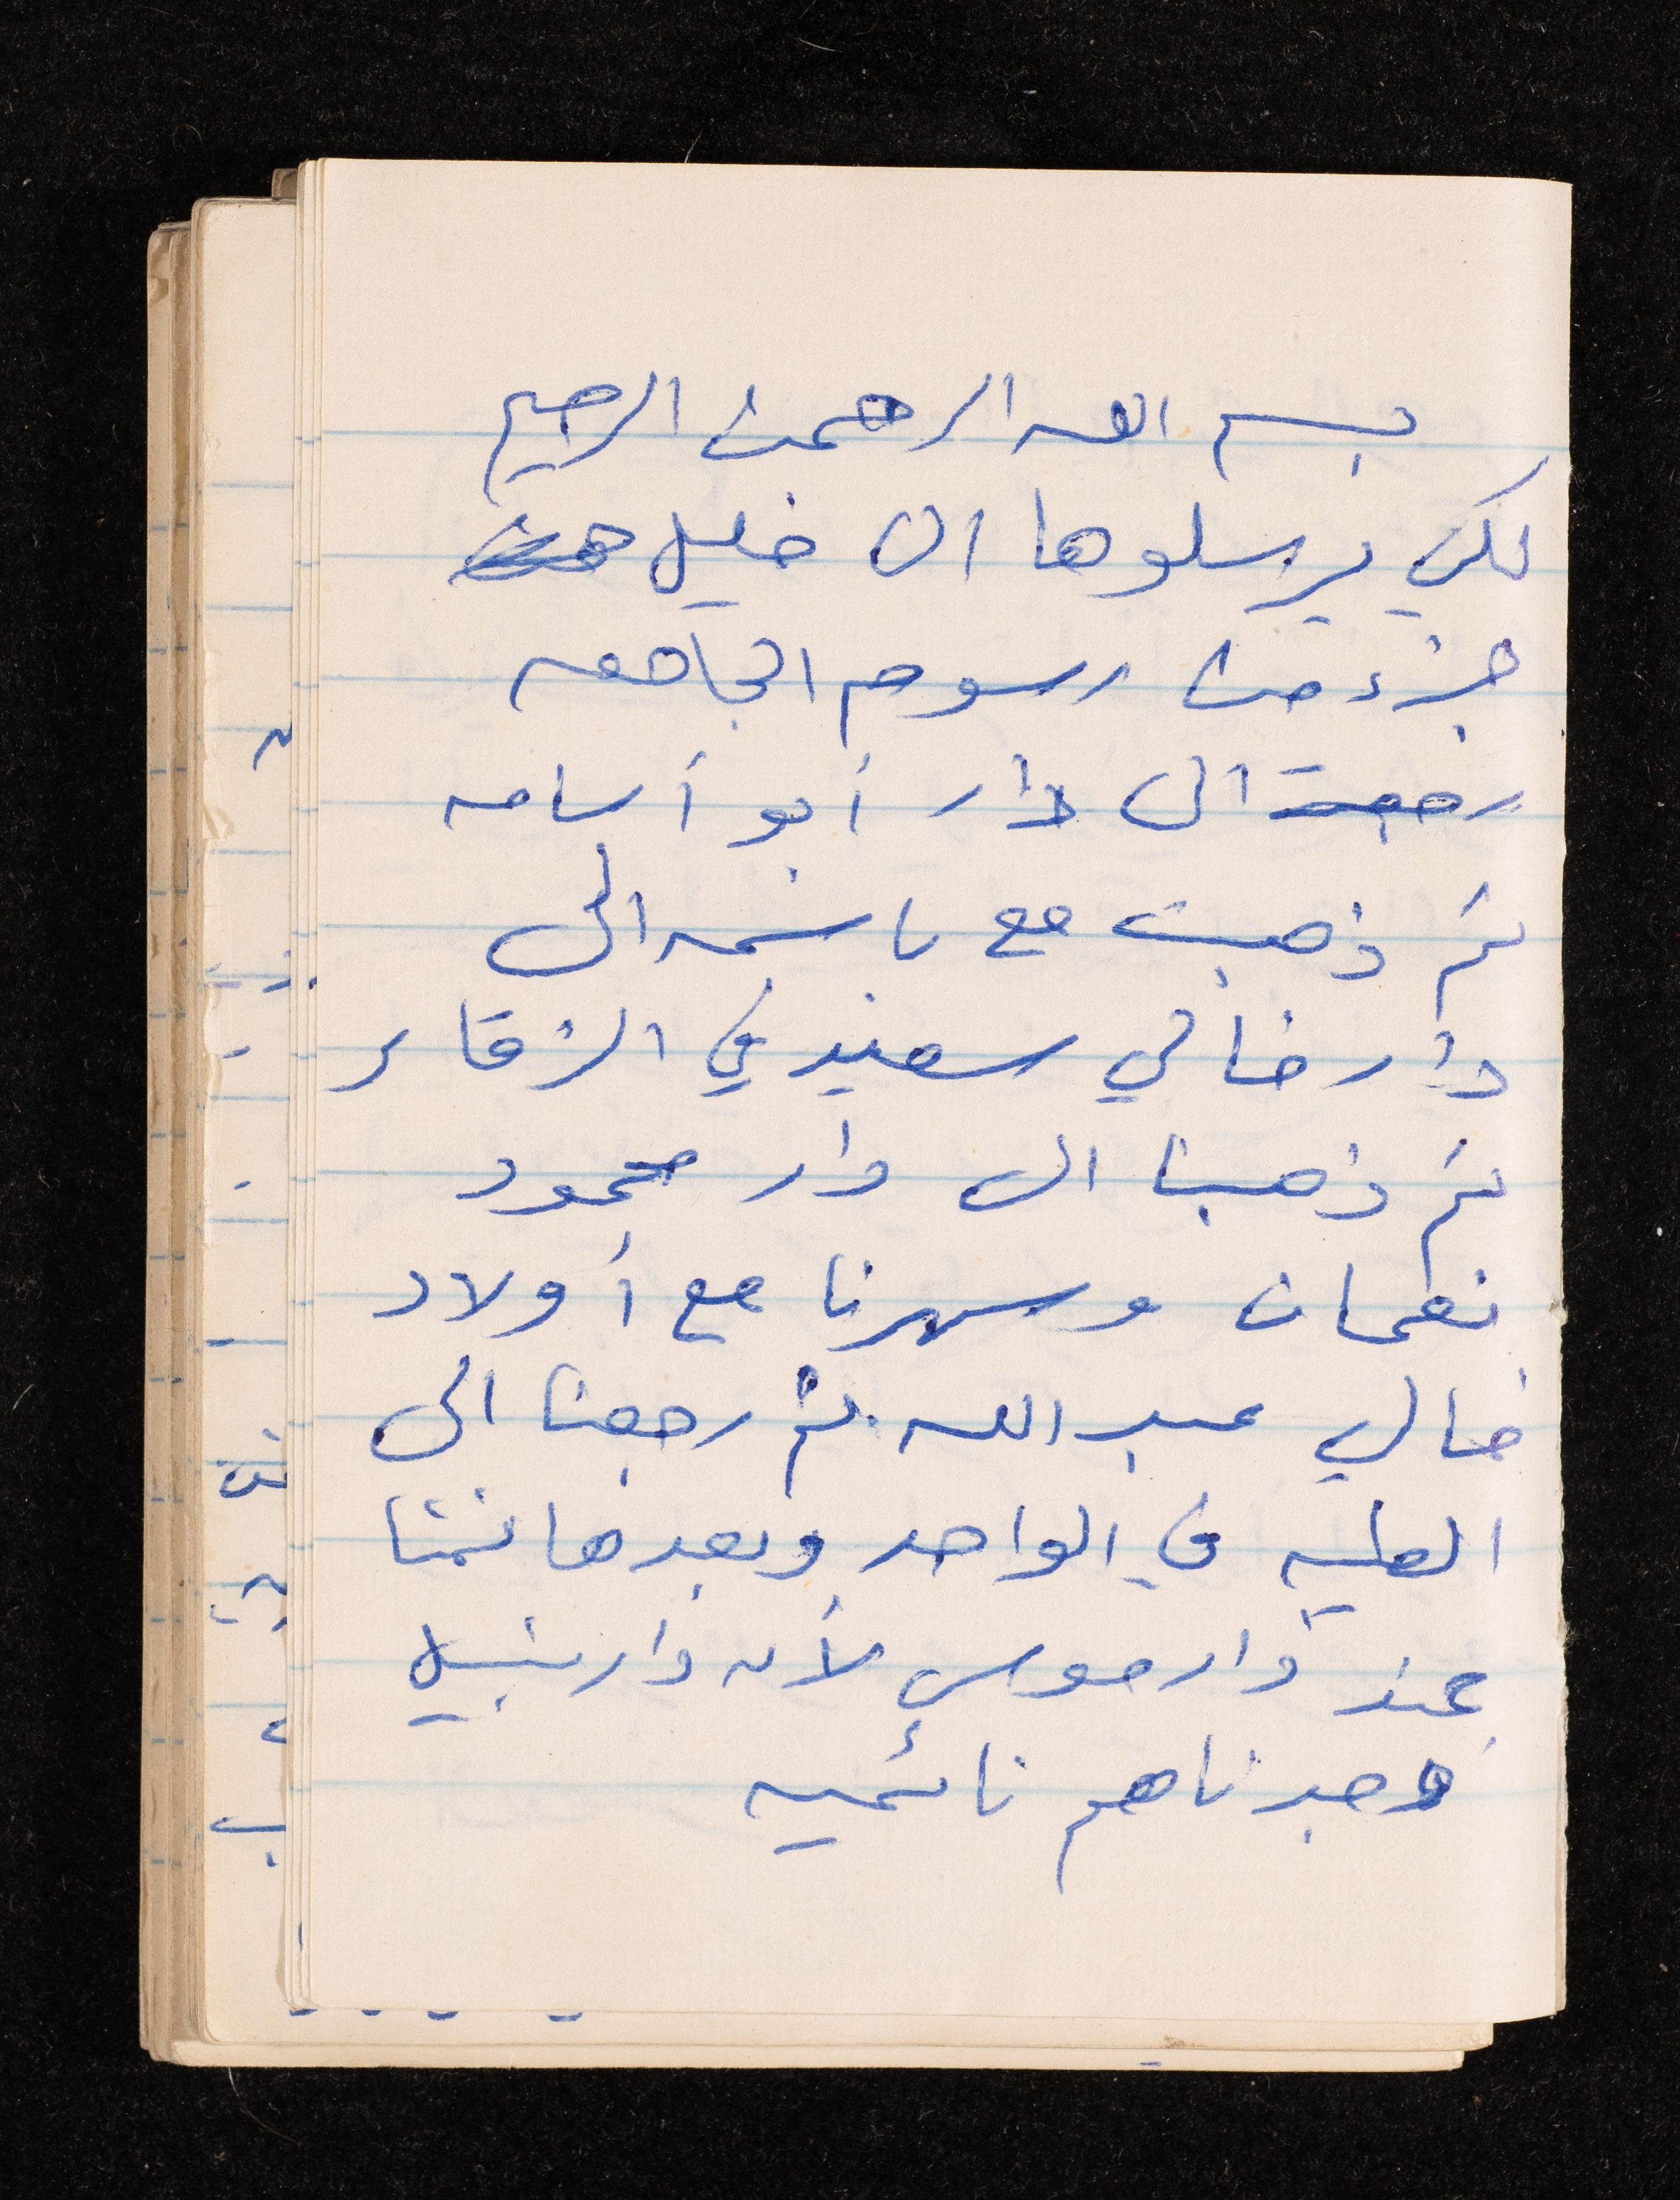 بسم الله الرحمن الرحيم
لكي يرسلوها الى خليل
جزء من رسوم الجامعه
رجعت الى دار أبو أسامه
ثم ذهبت مع باسمه الى
دار خالي سعيد في الزقاء
ثم ذهبنا الى دار محمود
نعمان وسهرنا مع أولاد
خالي عبد الله ثم رجعنا الى
العليه في الواحد وبعدها نمنا
عند دار موسى لأن دار نبيل
وجدناهم نائمين